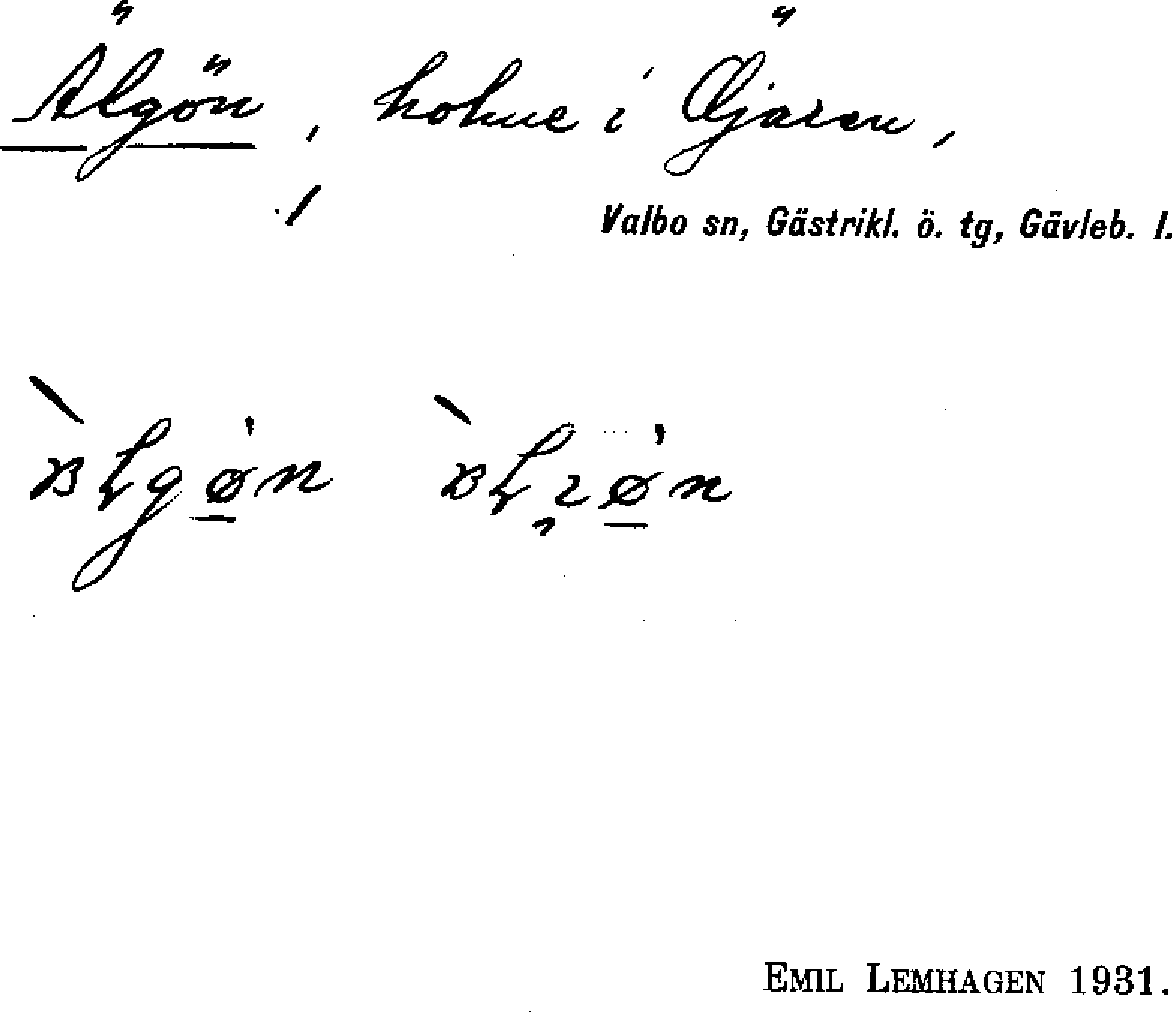 Älgön, holme i Öjaren,
Valbo sn, Gästrikl. ö. tg, Gävleb. l.
EMIL LEMHAGEN 1931.